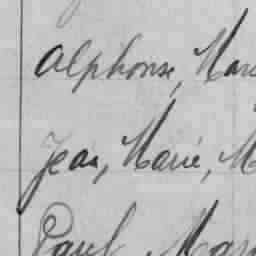 Alphonse, Mar
Jean, Marie, M
Paul Mar